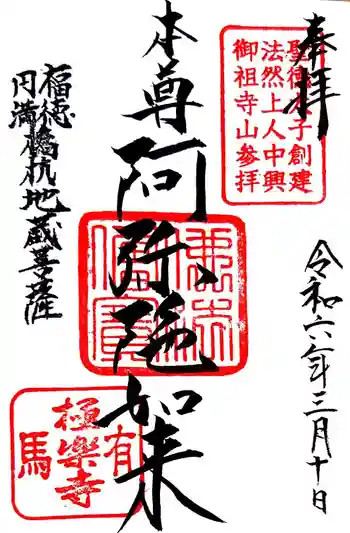 奉拝
聖徳太子創建
法然上人中興
御祖寺山参拝
令和六年三月十日
本尊阿弥陀如来
福徳
円満
橋杭地蔵菩薩
有
極楽寺
馬